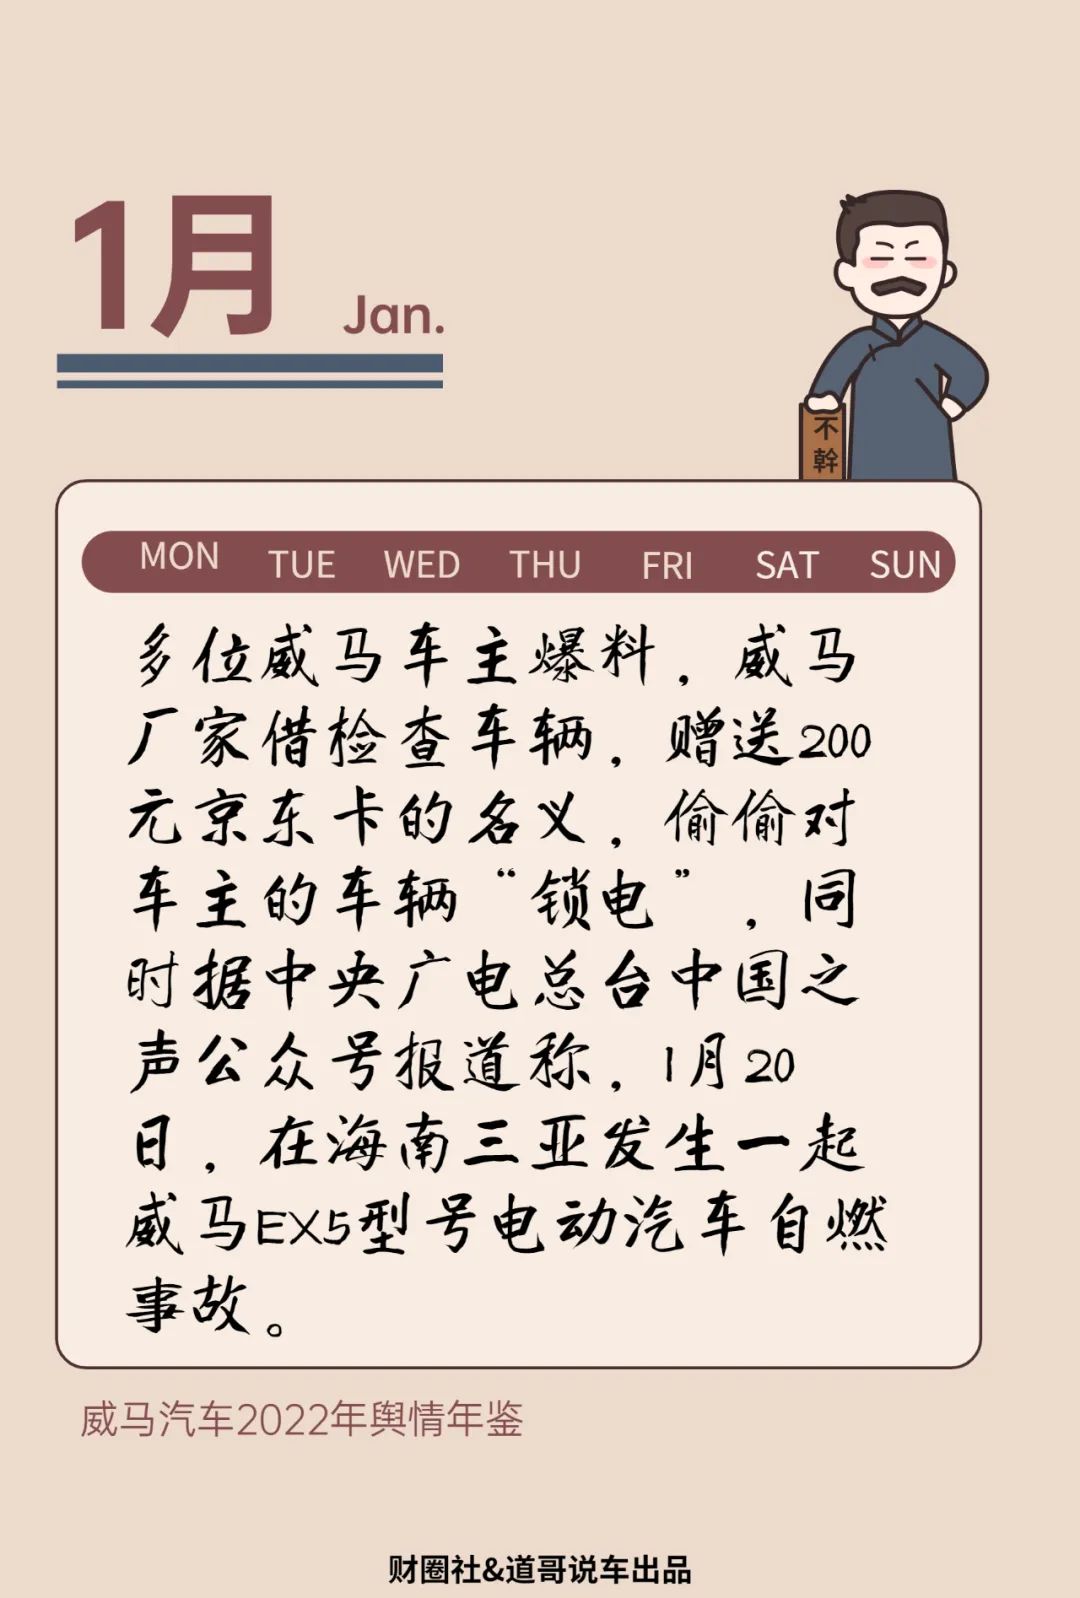 1月 Jan.
不
幹
MON TUE WED THU FRI SAT SUN
多位威马车主爆料，威马
厂家借检查车辆，赠送200
元京东卡的名义，偷偷对
车主的车辆“锁电”，同
时据中央广电总台中国之
声公众号报道称，1月20
日，在海南三亚发生一起
威马EX5型号电动汽车自燃
事故。
威马汽车2022年舆情年鉴
财圈社&道哥说车出品